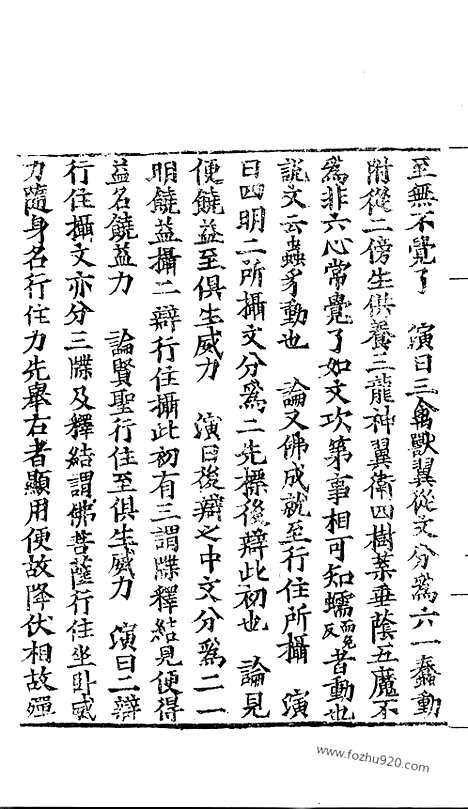 至無不覺了　演曰三禽獸翼從文分爲六一蠢動
附從二傍生供養三龍神翼衛四樹葉垂蔭五魔不
爲非六心常覺了如文次第事相可知蠕而兖反者動也
說文云蟲豸動也　論又佛成就至行住所攝　演
曰四明二所攝文分爲二先標後辯此初也　論見
便饒益至俱生威力　演曰後辯之中文分爲二一
明饒益攝二辯行住攝此初有三謂牒釋結見便得
益名饒益力　論賢聖行住至俱生威力　演曰二辯
行住攝文亦分三牒及釋結謂佛菩薩行住坐卧威
力隨身名行住力先舉右者顯用便故降伏相故殫
www.fozhu920.com